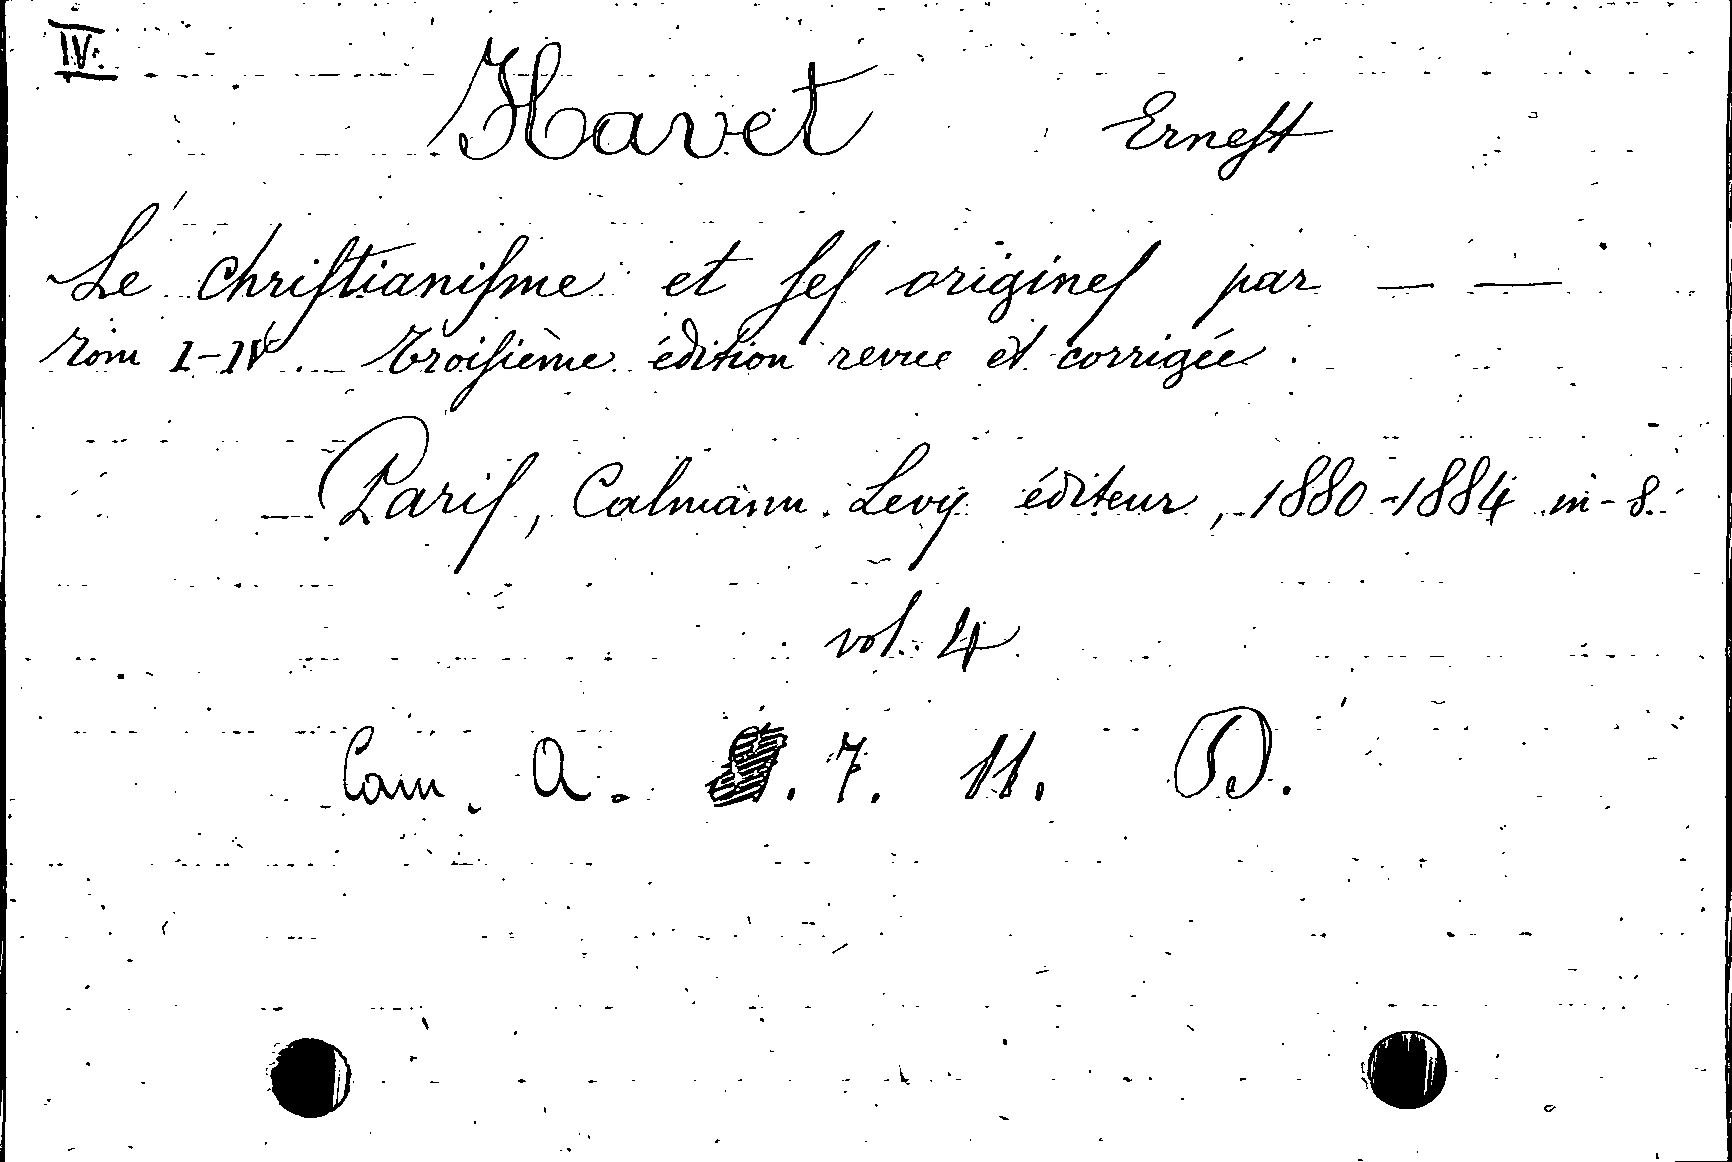 IV.
Havet Ernest
Le christianisme et ses origines par — —
Tom I-IV. Troisième édition revue et corrigée.
Paris, Calmann Levy éditeur, 1880-1884 in-8.
vol. 4
Cam. A. 7. 11. D.